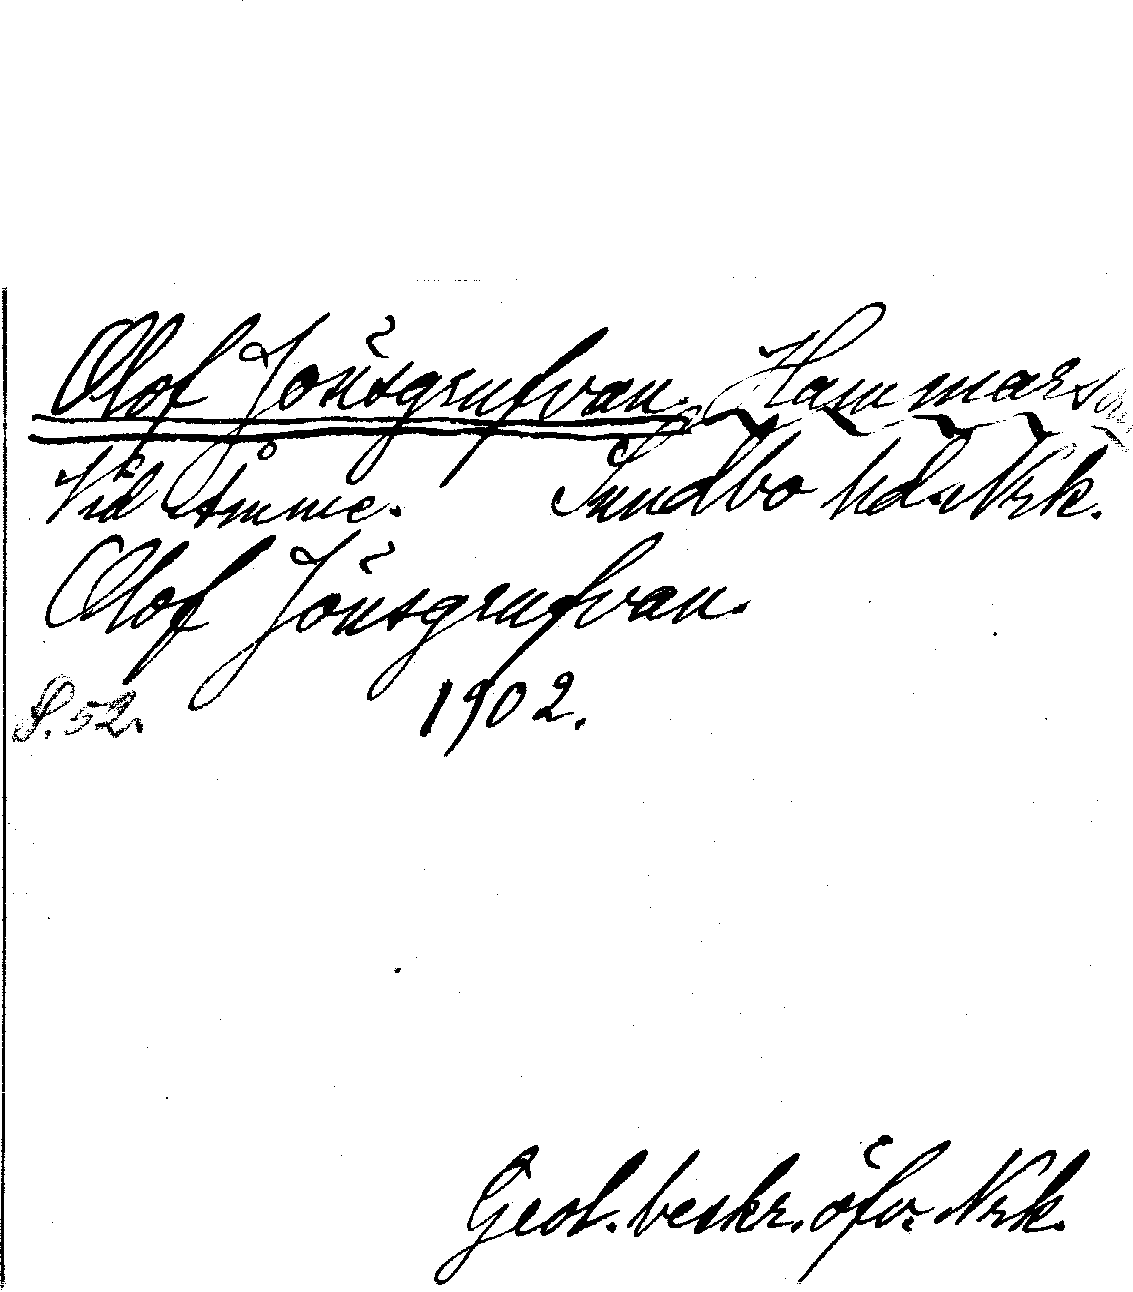 Olof Jönsgrufvan. Hammars sn
Vid Åmme. Sundbo hd. Nrk.
Olof Jönsgrufvan.
S. 52. 1902.
Geol. beskr. öfv. Nrk.